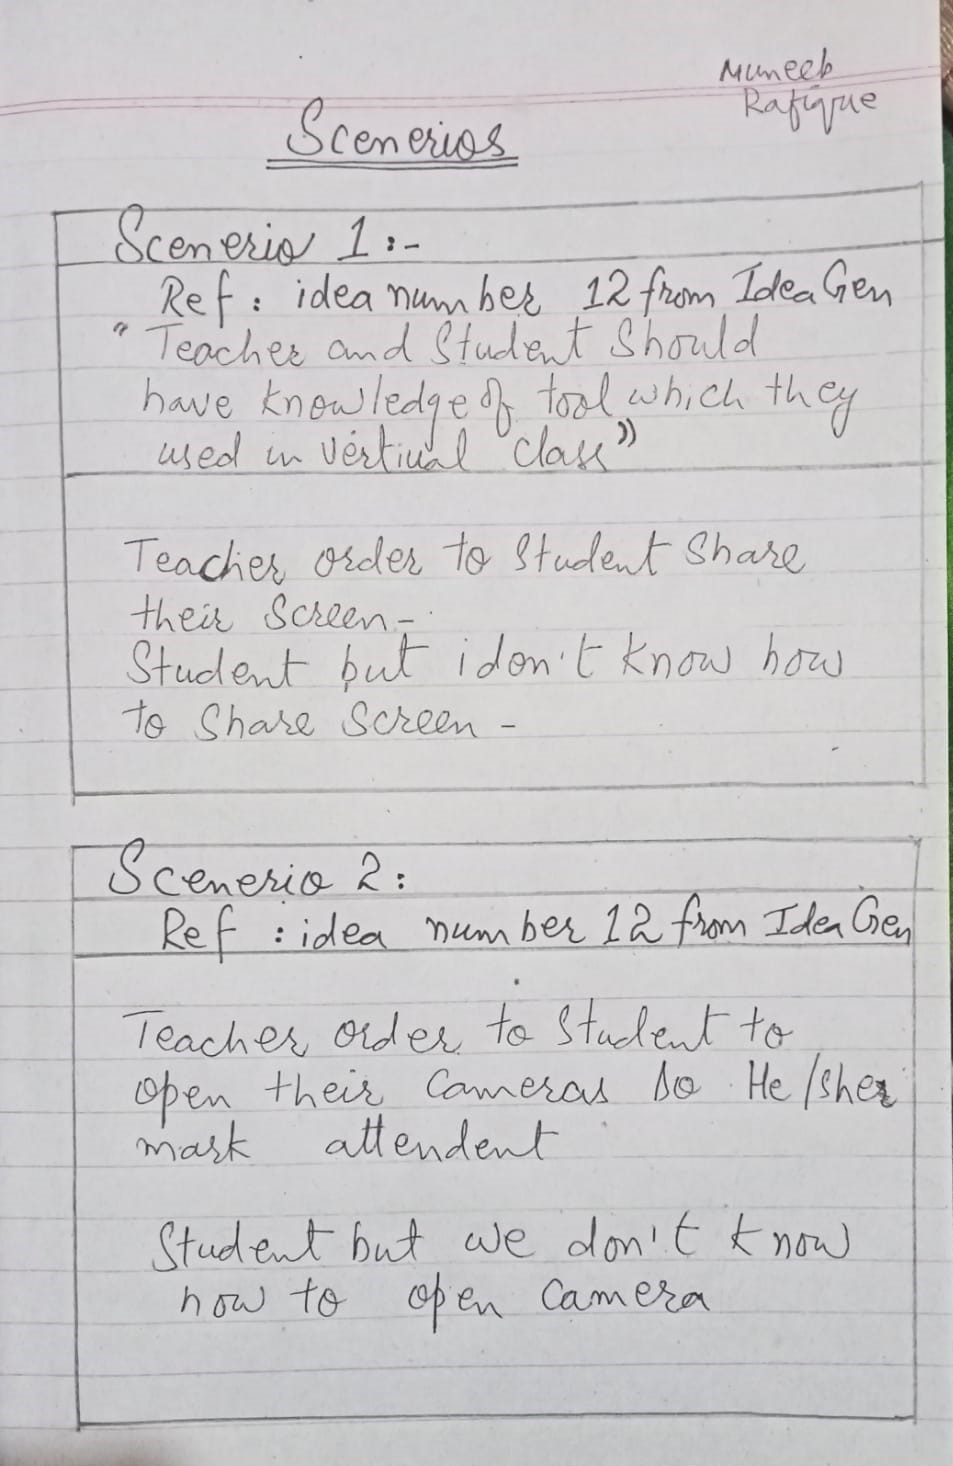 Muneeb
Rafique
Scenerios
Scenerio 1:-
Ref: idea number 12 from Idea Gen
"Teacher and Student Should
have knowledge of tool which they
used in vertiual class"
Teacher order to Student Share
their Screen-
Student but i don't know how
to Share Screen-
Scenerio 2:
Ref: idea number 12 from Idea Gen
Teacher order to Student to
open their Cameras So He/sher
mark attendent
Student but we don't know
how to open Camera